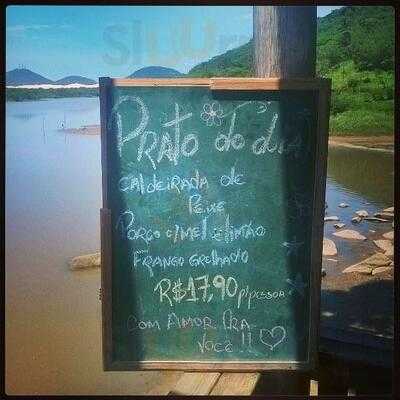 Prato do dia
Caldeirada de
Peixe
Porco c/mel e limão
Frango grelhado
R$17,90 p/pessoa
Com Amor Pra
Você!!